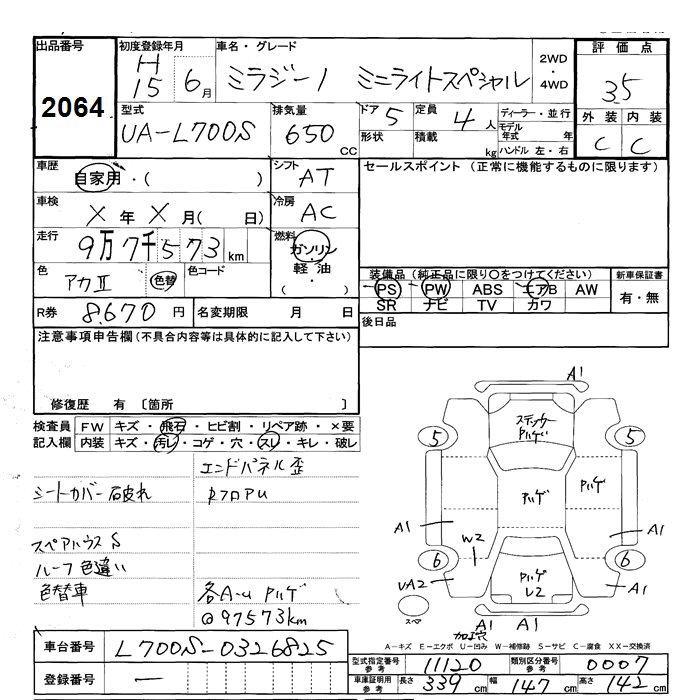 出品番号
2064
初度登録年月
H
15 6月
車名・グレード
ミラジーノ ミニライトスペシャル
2WD
・
4WD
評価点
3.5
型式
UA-L700S
排気量
650 CC
ドア 5
定員 4人
形状
積載 kg
ディーラー・並行
モデル
年式 年
ハンドル 左・右
外装 内装
C C
車歴
自家用・( )
シフト
AT
セールスポイント (正常に機能するものに限ります)
車検
X年 X月( 日)
冷房
AC
走行
9万7千573km
燃料
ガソリン
・
軽油
( ・ )
色
アカⅡ 色替
色コード
R券 8,670円
名変期限 月 日
装備品 (純正品に限り○をつけてください)
PS PW ABS エアB AW
SR ナビ TV カワ
新車保証書
有・無
後日品
注意事項申告欄 (不具合内容等は具体的に記入して下さい)
修復歴 有 〔箇所 〕
検査員
記入欄
FW キズ・飛石・ヒビ割・リペア跡・×要
内装 キズ・汚レ・コゲ・穴・スレ・キレ・破レ
エンドパネル歪
シートカバー破れ
RフロアU
スペアハウスS
ルーフ色違い
色替車
各A~U Pハゲ
@97573km
A1
ステッカー
Pハゲ
5 5
Pハゲ Pハゲ
A1 A1
W2
6 6
UA2 A1
Pハゲ
U2
スペア
A1 A1
加工穴
A-キズ E-エクボ U-凹み W-補修跡 S-サビ C-腐食 XX-交換済
車台番号 L700S-0326825
登録番号 -
型式指定番号
参考
11120
類別区分番号
参考
0007
車庫証明用
参考
長さ 339cm 幅 147cm 高さ 142cm